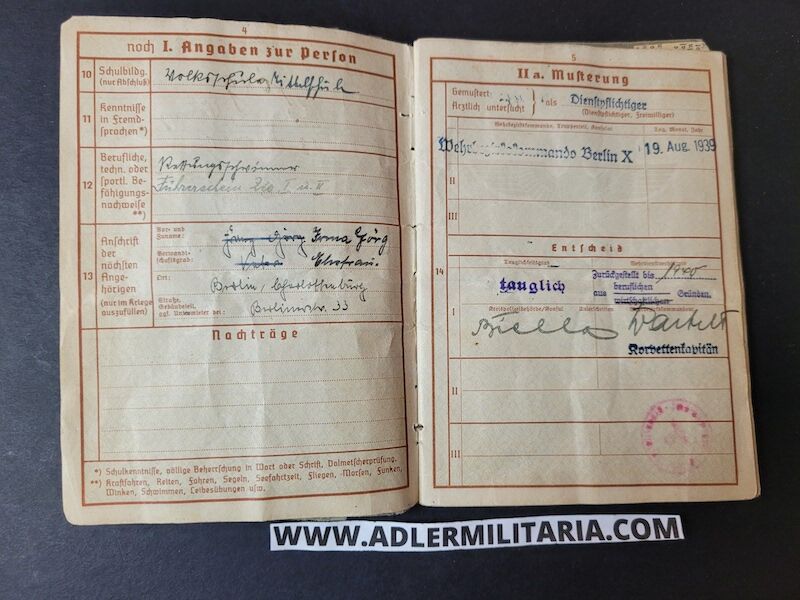 4
noch I. Angaben zur Person
10 Schulbildg. (nur Abschluß)
Volksschule, Mittelschule
11 Kenntnisse in Fremd-sprachen*)
12 Berufliche, techn. oder sportl. Be-fähigungs-nachweise **)
Rettungsschwimmer
Führerschein
I u. II
13 Anschrift der nächsten Ange-hörigen (nur im Kriege auszufüllen)
Vor- und Zuname:
Irma Görg
Verwandt-schaftsgrad:
Ehefrau.
Ort:
Berlin, Charlottenburg
Straße, Gebäudeteil, ggf. Untermieter bei:
Berlinerstr. 33
Nachträge
*) Schulkenntnisse, völlige Beherrschung in Wort oder Schrift, Dolmetscherprüfung.
**) Kraftfahren, Reiten, Fahren, Segeln, Seefahrtzeit, Fliegen, Morsen, Funken,
Winken, Schwimmen, Leibesübungen usw.
5
II a. Musterung
Gemustert:
Ärztlich untersucht
als Dienstpflichtiger
(Dienstpflichtiger, Freiwilliger)
Tag, Monat, Jahr
Wehrbezirkskommando Berlin X
19. Aug. 1939
II
III
Entscheid
14
Tauglichkeitsgrad
tauglich
Zurückgestellt bis 1940
beruflichen
aus wirtschaftlichen Gründen.
I
Korvettenkapitän
II
III
WWW.ADLERMILITARIA.COM